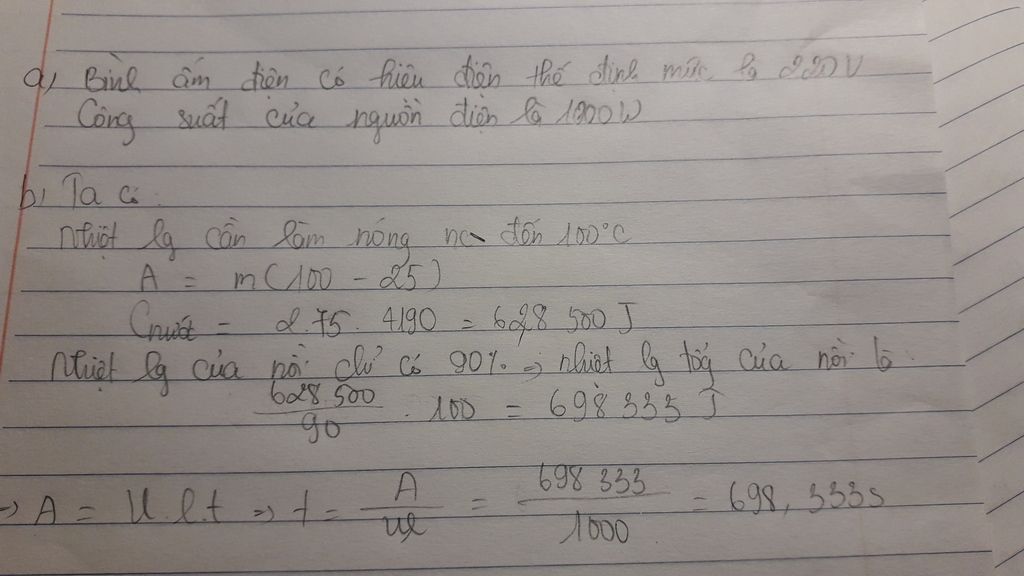 a) Bình ấm điện có hiệu điện thế định mức là 220V
Công suất của nguồn điện là 1000W
b) Ta có:
Nhiệt lg cần làm nóng nc đến 100°C
A = m(100 - 25)
Cnước = 2.75.4190 = 628 500 J
Nhiệt lg của nồi chỉ có 90% => nhiệt lg tỏa của nồi là:
628 500 / 90 . 100 = 698 333 J
=> A = U.I.t => t = A / UI = 698 333 / 1000 = 698,333s